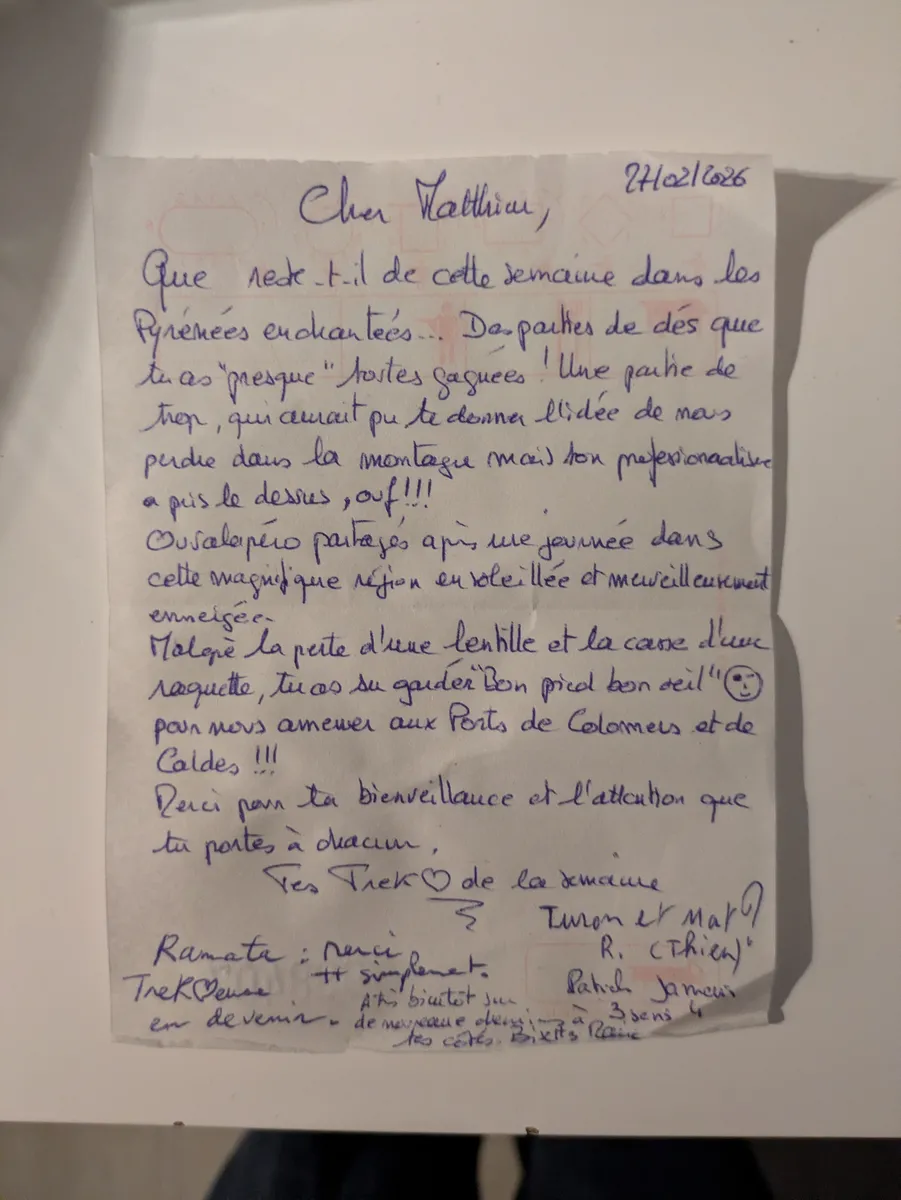 27/02/2026
Cher Matthieu,
Que reste-t-il de cette semaine dans les
Pyrénées enchantées... Des parties de dés que
tu as "presque" toutes gagnées ! Une partie de
trop, qui aurait pu te donner l'idée de nous
perdre dans la montagne mais ton professionnalisme
a pris le dessus, ouf !!!
Ousalapéro partagés après une journée dans
cette magnifique région ensoleillée et merveilleusement
enneigée.
Malgré la perte d'une lentille et la casse d'une
raquette, tu as su garder "Bon pied bon œil"
pour nous amener aux Ports de Colomers et de
Caldes !!!
Merci pour ta bienveillance et l'attention que
tu portes à chacun.
Tes Trek♡ de la semaine
et Mat
R. (Thien)
Ramata : merci
tt simplemet.
Trek♡euse
en devenir.
A très bientôt sur
de nouveaux à
tes côtés.
3 sens 4